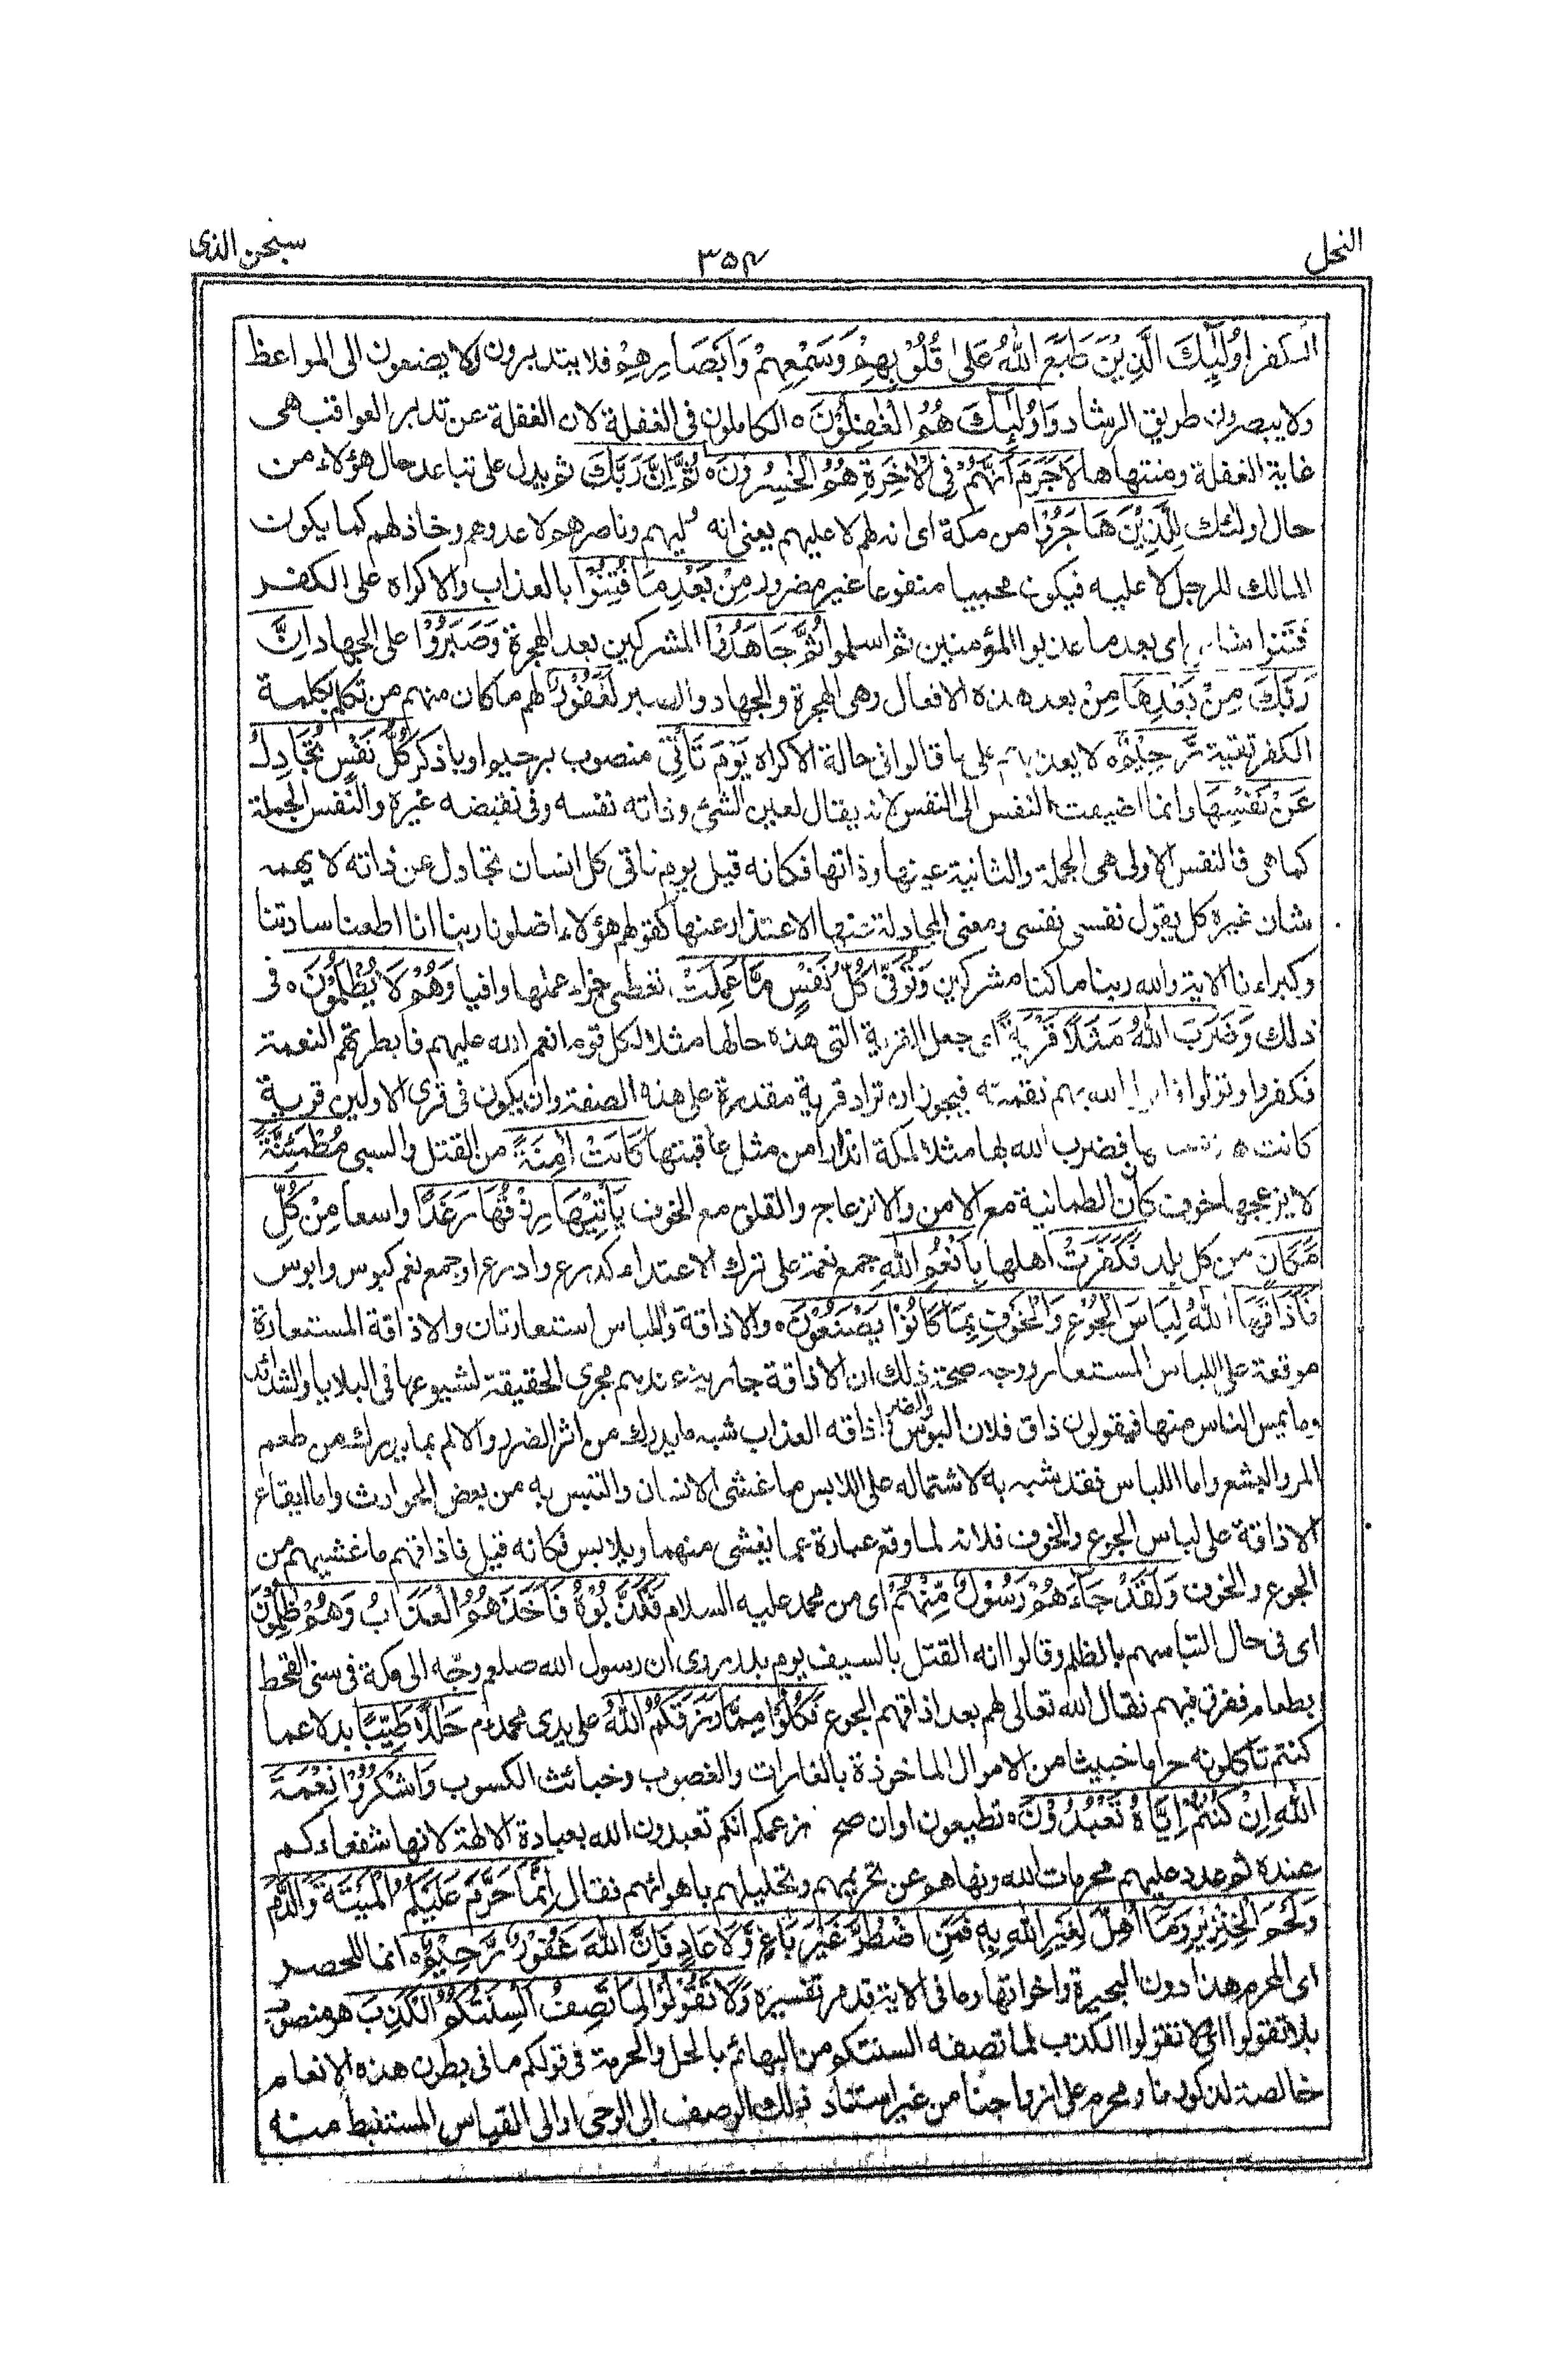 النحل
٣٥٤
سبحن الذى
الكفر اُولٰٓئِكَ الَّذِيْنَ طَبَعَ اللّٰهُ عَلٰى قُلُوْبِهِمْ وَسَمْعِهِمْ وَاَبْصَارِهِمْ فلا يتدبرون ولا يصغون الى المواعظ
ولا يبصرون طريق الرشاد وَاُولٰٓئِكَ هُمُ الْغٰفِلُوْنَ ٥ الكاملون فى الغفلة لان الغفلة عن تدبر العواقب هى
غاية الغفلة ومنتهاها لَاجَرَمَ اَنَّهُمْ فِى الْاٰخِرَةِ هُمُ الْخٰسِرُوْنَ ٥ ثُمَّ اِنَّ رَبَّكَ ثم يدل على تباعد حال هؤلاء من
حال اولئك لِلَّذِيْنَ هَاجَرُوْا من مكة اى انه لهم لا عليهم يعنى انه وليهم وناصرهم لا عدوهم وخاذلهم كما يكون
المالك للرجل لا عليه فيكون محميا منفوعا غير مضرور مِنْ بَعْدِ مَا فُتِنُوْا بالعذاب والاكراه على الكفر
فَتَنوا شامى اى بعد ما عذبوا المؤمنين ثم اسلموا ثُمَّ جَاهَدُوْا المشركين بعد الهجرة وَصَبَرُوْا على الجهاد اِنَّ
رَبَّكَ مِنْ بَعْدِهَا مِنْ بعد هذه الافعال وهى الهجرة والجهاد والصبر لَغَفُوْرٌ لهم ما كان منهم من تكلم بكلمة
الكفر تقية رَّحِيْمٌ ٥ لا يعذبهم على ما قالوا فى حالة الاكراه يَوْمَ تَاْتِىْ منصوب برحيم او باذكر كُلُّ نَفْسٍ تُجَادِلُ
عَنْ نَفْسِهَا وانما اضيفت النفس الى النفس لانه يقال لعين الشئ وذاته نفسه وفى نقيضه غيره والنفس الجملة
كما هى فالنفس الاولى هى الجملة والثانية عينها وذاتها فكانه قيل يوم ياتى كل انسان يجادل عن ذاته لا يهمه
شان غيره كل يقول نفسى نفسى ومعنى المجادلة عنها الاعتذار عنها كقولهم هؤلاء اضلونا ربنا انا اطعنا سادتنا
وكبراءنا الاية والله ربنا ما كنا مشركين وَتُوَفّٰى كُلُّ نَفْسٍ مَّا عَمِلَتْ تعطى جزاء عملها وافيا وَهُمْ لَا يُظْلَمُوْنَ ٥ فى
ذلك وَضَرَبَ اللّٰهُ مَثَلًا قَرْيَةً اى جعل القرية التى هذه حالها مثلا لكل قوم انعم الله عليهم فابطرتهم النعمة
فكفروا وتولوا فانزل الله بهم نقمته فيجوز ان تراد قرية مقدرة على هذه الصفة وان يكون فى قرى الاولين قرية
كانت هذه حالها فضرب الله بها مثلا لمكة انذارا من مثل عاقبتها كَانَتْ اٰمِنَةً من القتل والسبى مُطْمَئِنَّةً
لا يزعجها خوف لان الطمانية مع الامن والانزعاج والقلق مع الخوف يَاْتِيْهَا رِزْقُهَا رَغَدًا واسعا مِنْ كُلِّ
مَكَانٍ من كل بلد فَكَفَرَتْ اهلها بِاَنْعُمِ اللّٰهِ جمع نعمة على ترك الاعتداد بالتاء كدرع وادرع او جمع نعم كبوس وابوس
فَاَذَاقَهَا اللّٰهُ لِبَاسَ الْجُوْعِ وَالْخَوْفِ بِمَا كَانُوْا يَصْنَعُوْنَ ٥ والاذاقة واللباس استعارتان والاذاقة المستعارة
موقعة على اللباس المستعار ووجه صحة ذلك ان الاذاقة جارية عندهم مجرى الحقيقة لشيوعها فى البلايا والشدائد
وما يمس الناس منها فيقولون ذاق فلان البوس والضر واذاقه العذاب شبه ما يدرك من اثر الضرر والالم بما يدرك من طعم
المر والبشع واما اللباس فقد شبه به لاشتماله على اللابس ما غشى الانسان والتبس به من بعض الحوادث واما ايقاع
الاذاقة على لباس الجوع والخوف فلانه لما وقع عبارة عما يغشى منهما ويلابس فكانه قيل فاذاقهم ما غشيهم من
الجوع والخوف وَلَقَدْ جَآءَهُمْ رَسُوْلٌ مِّنْهُمْ اى من محمد عليه السلام فَكَذَّبُوْهُ فَاَخَذَهُمُ الْعَذَابُ وَهُمْ ظٰلِمُوْنَ
اى فى حال التباسهم بالظلم وقالوا انه القتل بالسيف يوم بدر روى ان رسول الله صلعم وجّه الى مكة فى سنى القحط
بطعام ففرق فيهم فقال الله تعالى لهم بعد اذاقتهم الجوع فَكُلُوْا مِمَّا رَزَقَكُمُ اللّٰهُ على يدى محمد م حَلٰلًا طَيِّبًا بدلا عما
كنتم تاكلونه حراما خبيثا من الاموال الماخوذة بالغارات والغصوب وخبائث الكسوب وَاشْكُرُوْا نِعْمَةَ
اللّٰهِ اِنْ كُنْتُمْ اِيَّاهُ تَعْبُدُوْنَ ٥ تطيعون او ان صح زعمكم انكم تعبدون الله بعبادة الالهة لانها شفعاءكم
عنده ثم عدد عليهم محرمات الله ونهاهم عن تحريمهم وتحليلهم باهوائهم فقال اِنَّمَا حَرَّمَ عَلَيْكُمُ الْمَيْتَةَ وَالدَّمَ
وَلَحْمَ الْخِنْزِيْرِ وَمَآ اُهِلَّ لِغَيْرِ اللّٰهِ بِهٖ فَمَنِ اضْطُرَّ غَيْرَ بَاغٍ وَّلَا عَادٍ فَاِنَّ اللّٰهَ غَفُوْرٌ رَّحِيْمٌ ٥ انما للحصر
اى المحرم هذا دون البحيرة واخواتها وما فى الاية قد مر تفسيره وَلَا تَقُوْلُوْا لِمَا تَصِفُ اَلْسِنَتُكُمُ الْكَذِبَ هو منصوب
بلا تقولوا اى لا تقولوا الكذب لما تصفه السنتكم من البهائم بالحل والحرمة فى قولكم ما فى بطون هذه الانعام
خالصة لذكورنا ومحرم على ازواجنا من غير استناد ذلك الوصف الى الوحى او الى القياس المستنبط منه